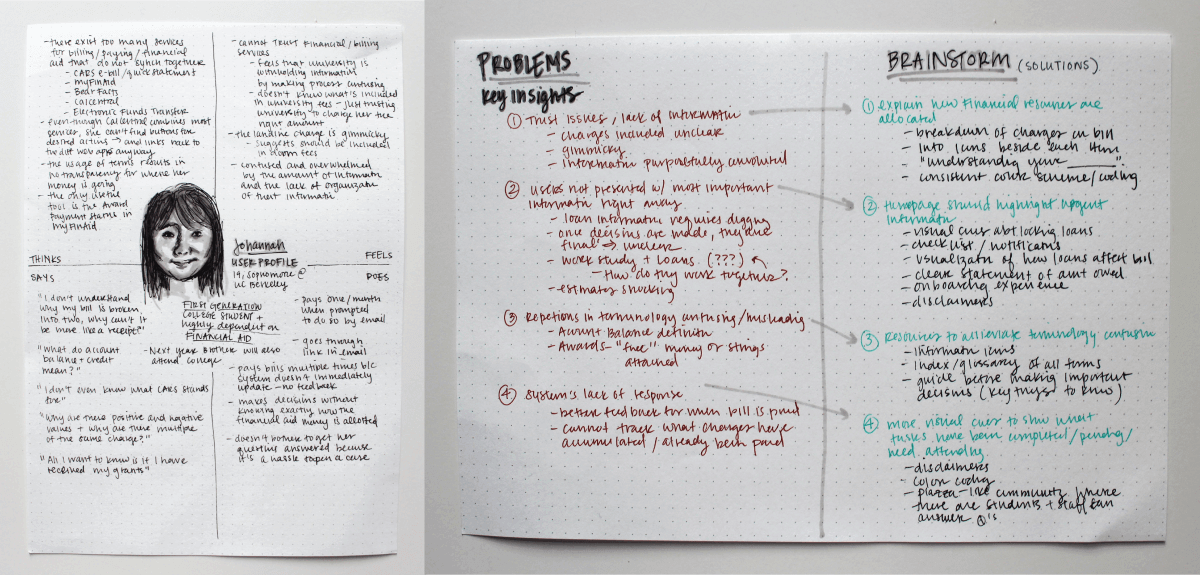 - there exist too many services
for billing/paying/financial
aid that do not synch together
- CARS e-bill/quickstatement
- myFinAid
- BearFacts
- CalCentral
- Electronic Funds Transfer
- even though CalCentral combines most
services, she can't find buttons for
desired actions → and links back to
the diff web apps anyway.
- the usage of terms results in
no transparency for where her
money is going
- the only useful
tool is the Award
payment status in
myFinAid
THINKS
- cannot TRUST Financial/billing
services
- feels that university is
withholding information
by making process confusing
- doesn't know what's included
in university fees - just trusting
university to charge her the
right amount
- the landline charge is gimmicky
- suggests should be included
in room fees
- confused and overwhelmed
by the amount of information
and the lack of organization
of that information
FEELS
Johannah
USER PROFILE
19, sophomore @
UC Berkeley
FIRST GENERATION
COLLEGE STUDENT +
highly dependent on
FINANCIAL AID
- Next year brother will also
attend college
SAYS
"I don't understand
why my bill is broken
into two, why can't it
be more like a receipt"
"What do account
balance + credit
mean?"
"I don't even know what CARS stands
for"
"Why are there positive and negative
values + why are there multiple
of the same charge?"
"All I want to know is if I have
received my grants"
DOES
- pays one/month
when prompted
to do so by email
- goes through
link in email
- pays bills multiple times b/c
system doesn't immediately
update - no feedback
- makes decisions without
knowing exactly how the
financial aid money is allotted
- doesn't bother to get her
questions answered because
it's a hassle to open a case
PROBLEMS
Key Insights
① Trust issues / lack of information
- charges included unclear
- gimmicky
- Information purposefully convoluted
② users not presented w/ most important
information right away
- loan information requires digging
- once decisions are made, they are
final → unclear
- work study + loans (???)
- How do they work together?
- estimates shocking
③ Repetions in terminology confusing/misleading
- Account Balance definition
- Awards - "free" money or strings
attached
④ System's lack of response
- better feedback for when bill is paid
- cannot track what charges have
accumulated / already been paid
BRAINSTORM (SOLUTIONS)
① explain how financial resources are
allocated
- breakdown of charges on bill
- info icons beside each item
- "understanding your ______"
- consistent color scheme/coding
② Homepage should highlight urgent
information
- visual cues abt locking loans
- checklist / notifications
- visualization of how loans affect bill
- clear statement of amt owed
- onboarding experience
- disclaimers
③ Resources to alleviate terminology confusion
- information icons
- Index/glossary of all terms
- guide before making important
decisions (key things to know)
④ more visual cues to show what
tasks have been completed/pending/
need attending
- disclaimers
- color coding
- piazza-like community where
there are students + staff can
answer Q's